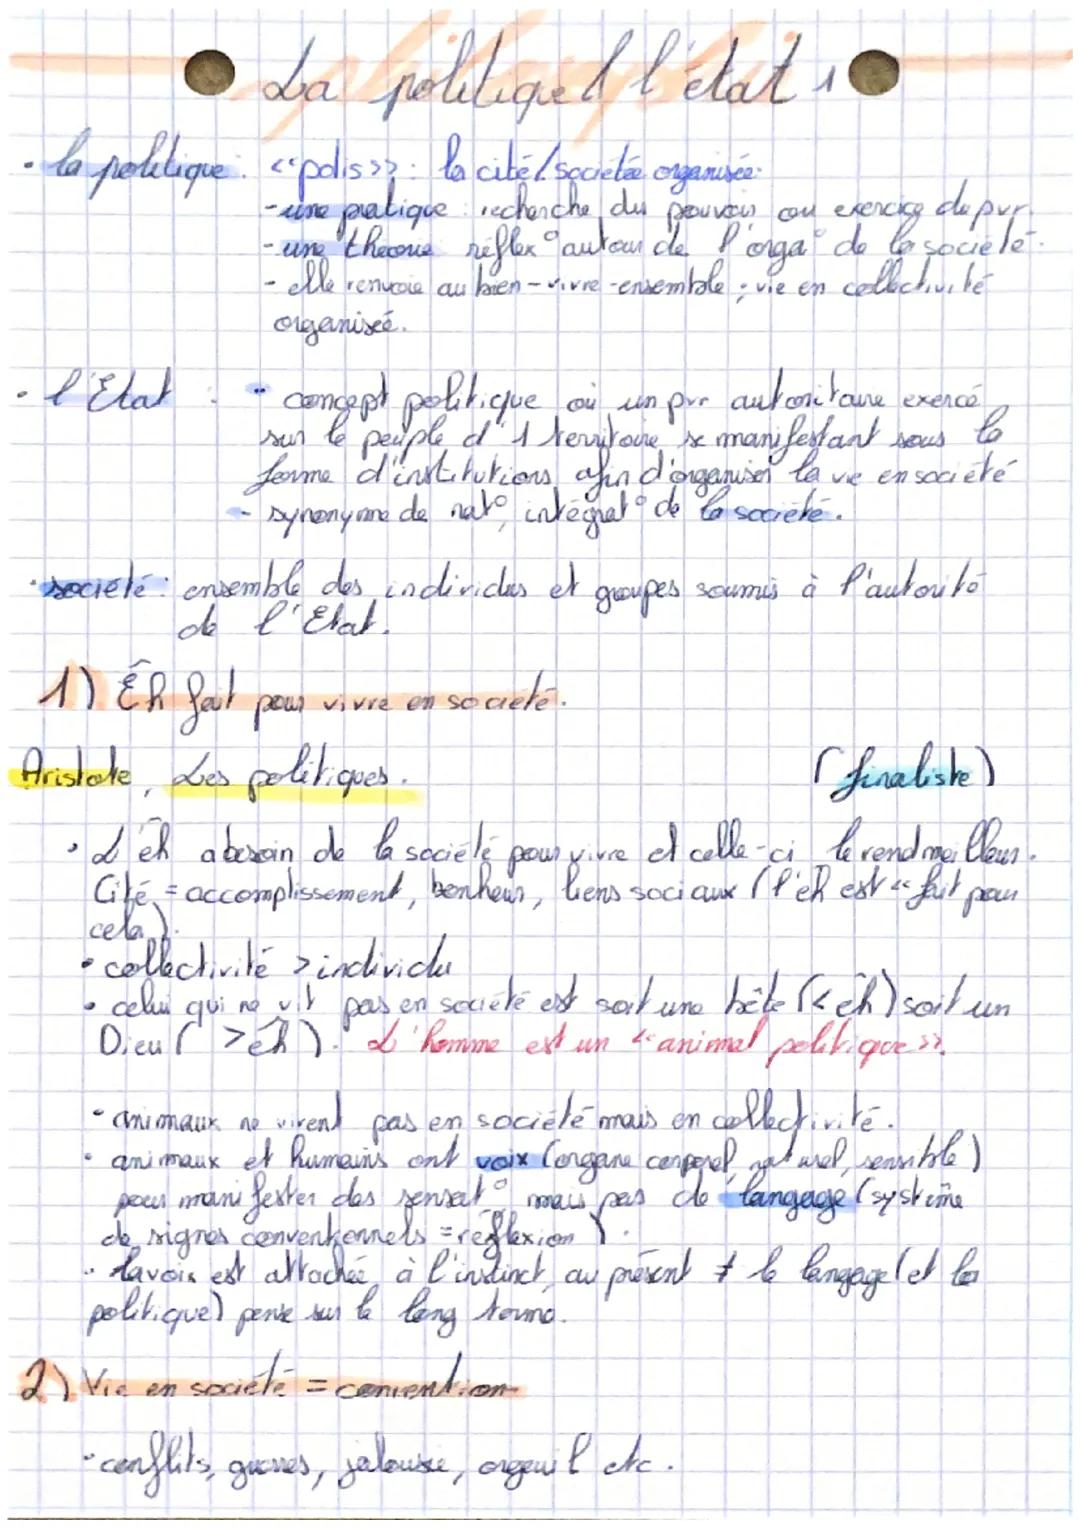 La politique / l'état 1
• la politique : <<polis>> : la cité / sociétée organisée.
- une pratique : recherche du pouvoir ou exercice du pvr.
- une théorie réflex° autour de l'orga° de la société.
- elle renvoie au bien-vivre-ensemble ; vie en collectivité
organiseé.
• l'Etat : - concept politique où un pvr autoritaire exercé
sur le peuple d'1 territoire, se manifestant sous la
forme d'institutions, afin d'organiser la vie en société
- synonyme de nat°, intégrat° de la société.
• société : ensemble des individus et groupes soumis à l'autorité
de l'Etat.
1) Êh fait pour vivre en société.
Aristote, Les politiques. (finaliste)
• L'êh a besoin de la société pour vivre et celle-ci le rend meilleur.
Cité = accomplissement, bonheur, liens sociaux (l'êh est << fait pour
cela).
• collectivité > individu
• celui qui ne vit pas en société est soit une bête (< êh) soit un
Dieu ( > êh ). L'homme est un << animal politique >>.
• animaux ne vivent pas en société mais en collectivité.
• animaux et humains ont voix (organe corporel, naturel, sensible)
pour manifester des sensat° mais pas de langage (système
de signes conventionnels = réflexion ).
• la voix est attachée à l'instinct, au présent ≠ le langage (et la
politique) pense sur le long terme.
2) Vie en société = convention
• conflits, guerres, jalousie, orgeuil etc.